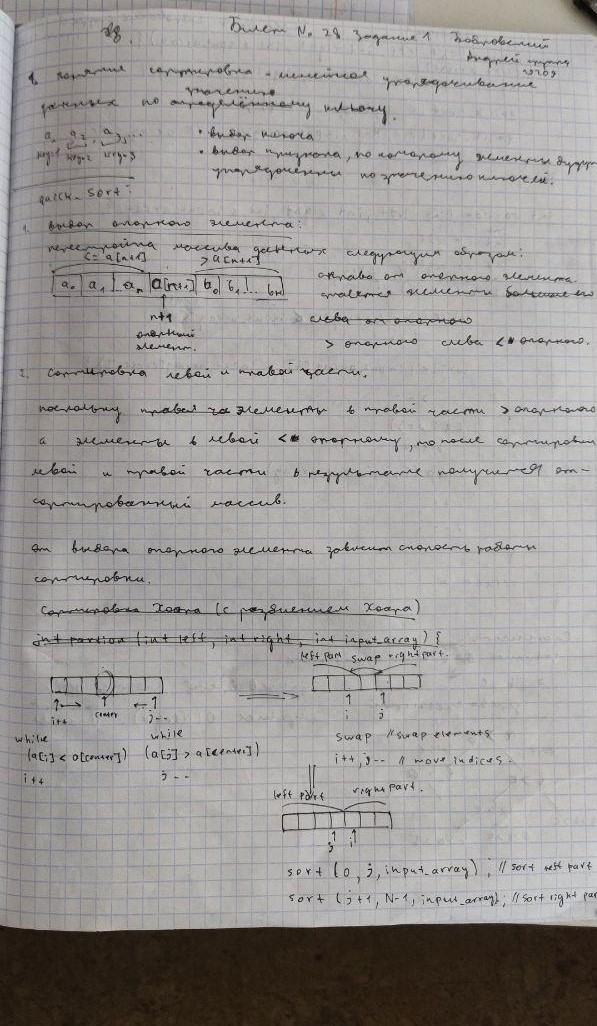 28.
Билет № 28 Задание 1 Бобровский
Андрей группа
20209
1. Понятие сортировка - линейное упорядочивание
значению
данных по определённому ключу.
a₁, a₂, a₃, ...
key=1 key=2 key=3
• выбор ключа
• выбор признака, по которому элементы будут
упорядочены по значению ключей.
quick-sort:
1. выбор опорного элемента:
перестройка массива данных следующим образом:
<= a[n+1] > a[n+1]
a₀ a₁ ... aₙ a[n+1] b₀ b₁ ... bₙ
n+1
опорный
элемент.
справа от опорного элемента
ставятся элементы больше его
слева от опорного
> опорного слева < опорного.
2. Сортировка левой и правой части.
поскольку правая ча элементы в правой части > опорного
а элементы в левой < опорному, то после сортировки
левой и правой части в результате получится от-
сортированный массив.
от выбора опорного элемента зависит скорость работы
сортировки.
Сортировка Хоара (с разбиением Хоара)
int partion (int left, int right, int input_array) {
left part swap right part.
i++ center j--
i j
while while
(a[i] < a[center]) (a[j] > a[center])
i++ j--
swap // swap elements
i++, j-- // move indices.
left part right part.
j i
sort (0, j, input_array); // sort left part
sort (j+1, N-1, input_array); // sort right par